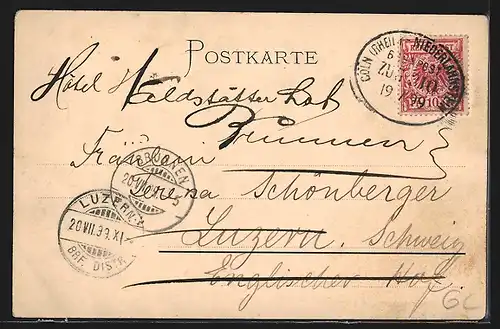 POSTKARTE
Hôtel Waldstätter hof
Brunnen
Fräulein
Schönberger
Luzern. Schweiz
Englischer Hof
CÖLN (RHEIN)
ZUG
19 99
10 10
BRUNNEN
20 VII
LUZERN
20 VII. 99. XI
BRF. DISTR.
GC